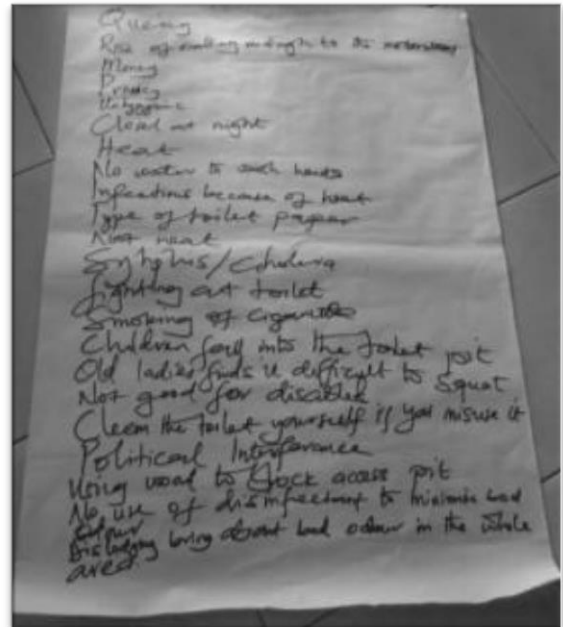 Queing
Risk of walking midnight to the
Money
Privacy
Unhygienic
Closed at night
Heat
No water to wash hands
Infections because of heat
Type of toilet papear
Not neat
Syphylis/cholera
fighting at toilet
Smoking of cigarette
Children fall into the toilet pit
Old ladies finds it difficult to squat
Not good for disable
Clean the toilet yourself if you misuse it
Political Interference
Using wood to block access pit
No use of disinfectant to minimise bad
odour
Dislodging bring about bad odour in the whole
area